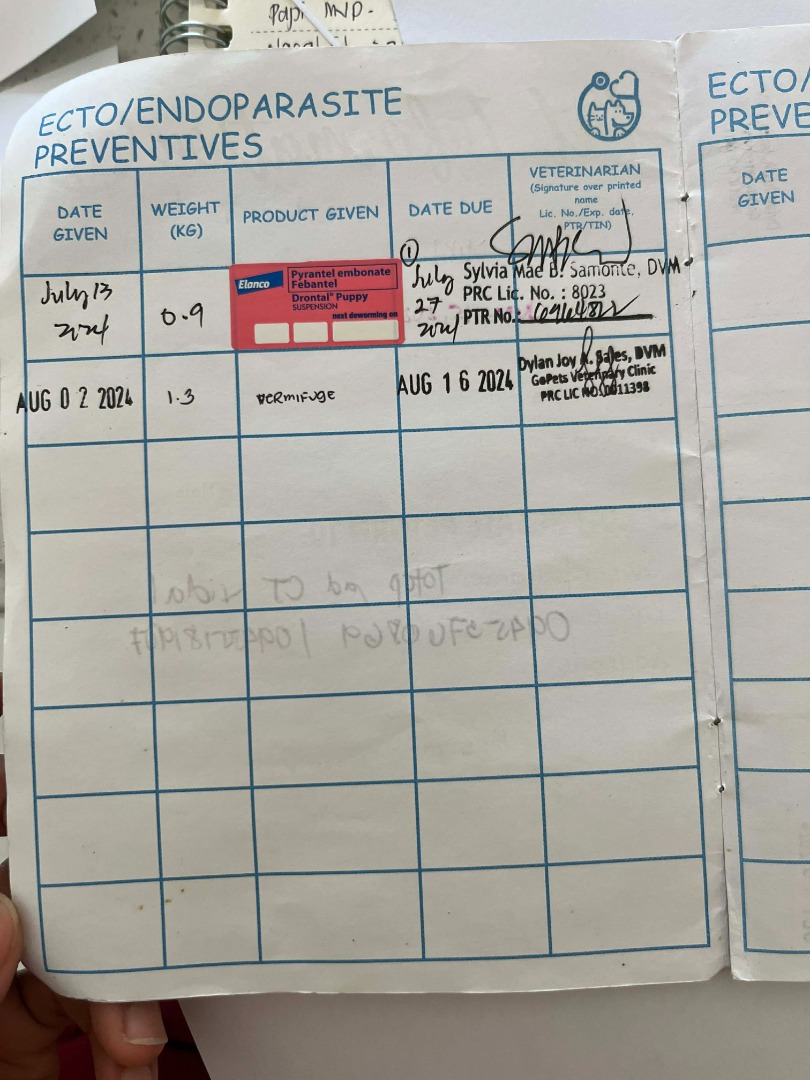 Papi MVP.
ECTO/ENDOPARASITE
PREVENTIVES
ECTO/
PREVE
DATE
GIVEN
WEIGHT
(KG)
PRODUCT GIVEN
DATE DUE
VETERINARIAN
(Signature over printed
name
Lic. No./Exp. date,
PTR/TIN)
DATE
GIVEN
July 13
2024
0.9
Elanco
Pyrantel embonate
Febantel
Drontal® Puppy
SUSPENSION
next deworming on
1
July
27
2024
Sylvia Mae B. Samonte, DVM
PRC Lic. No. : 8023
PTR No.:
AUG 0 2 2024
1.3
VERMIFUGE
AUG 1 6 2024
Dylan Joy A. Sales, DVM
GoPets Veterinary Clinic
PRC LIC NO. 0011398